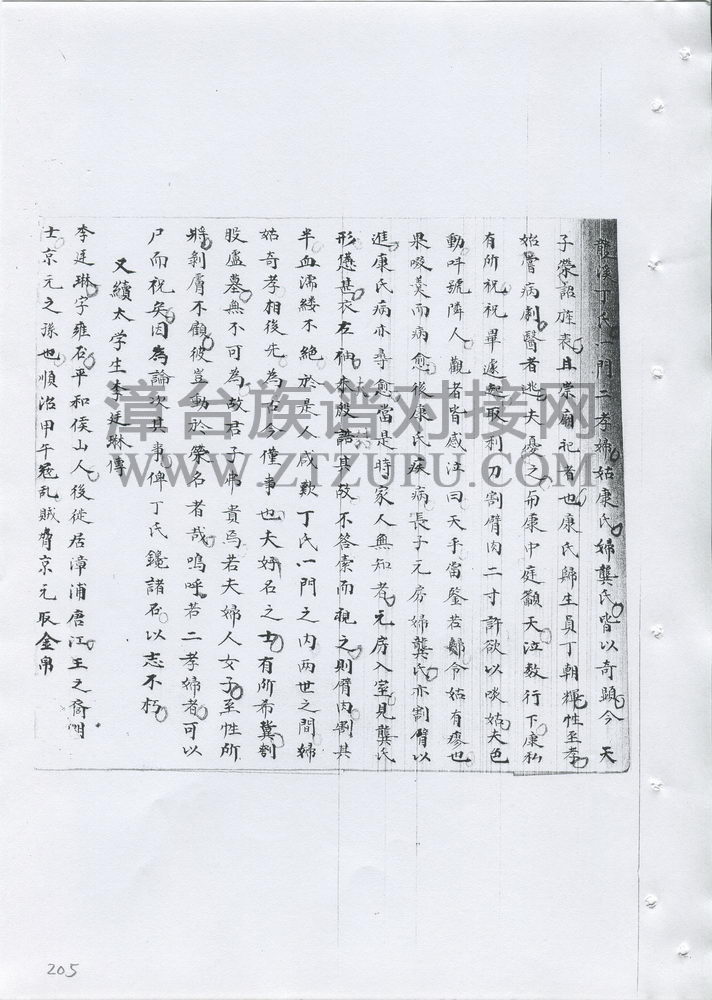 龔溪丁氏一門二孝婦姑康氏婦龔氏皆以奇顕今天
子榮詔旌表且崇廟祀者也康氏歸生員丁朝輝性至孝
姑嘗病劇醫者逃夫憂之甫康中庭籲天泣数行下康私
有所祝祝畢遽起取利刀割臂肉二寸許欲以啖姑夫色
動呼號隣人觀者皆感泣曰天乎當鑒若鄭令姑有瘳也
果啖羹而病愈後康氏疾病長子元房婦龔氏亦割臂以
進康氏病亦尋愈當是時家人無知者元房入室見龔氏
形憊甚衣左袖朱殷詰其故不答褰而視之則臂肉割其
半血濡縷不絕於是人咸歎丁氏一門之内两世之間婦
姑奇孝相後先為古今僅事也夫好名之士有所希冀割
股廬墓無不可為故君子弗貴焉若夫婦人女子至性所
將剝膚不顧彼豈動於榮名者哉嗚呼若二孝婦者可以
尸而祝矣因為論次其事俾丁氏鑱諸石以志不朽
又續太学生李廷琳傳
李廷琳字雍石平和侯山人後徙居漳浦唐江王之裔明
士京元之孫也順治甲午冠乱賊脅京元取金帛
漳台族谱对接网
WWW.ZTZUPU.COM
205